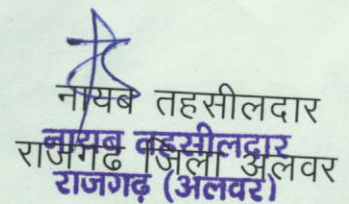 नायब तहसीलदार
नायब तहसीलदार
राजगढ जिला अलवर
राजगढ़ (अलवर)